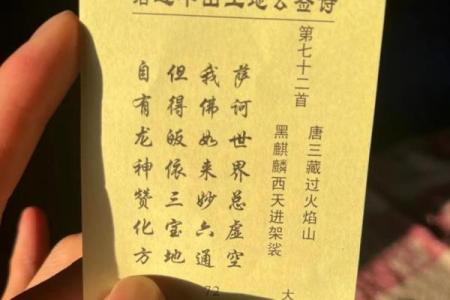 山土地公签诗
第七十二首
唐三藏过火焰山
黑麒麟西天进架裟
萨诃世界总虚空
我佛如来妙六通
但得皈依三宝地
自有龙神赞化方
72
大